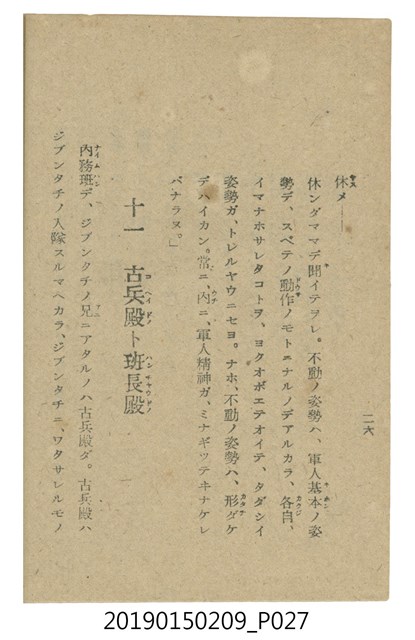 休メ――
休ンダママデ聞イテヲレ。不動ノ姿勢ハ、軍人基本ノ姿
勢デ、スベテノ動作ノモトニナルノデアルカラ、各自、
イマナホサレタコトヲ、ヨクオボエテオイテ、タダシイ
姿勢ガ、トレルヤウニセヨ。ナホ、不動ノ姿勢ハ、形ダケ
デハイカン。常ニ、内ニ、軍人精神ガ、ミナギッテヰナケレ
バナラヌ。」
十一 古兵殿ト班長殿
内務班デ、ジブンタチノ兄ニアタルノハ古兵殿ダ。古兵殿ハ
ジブンタチノ入隊スルマヘカラ、ジブンタチニ、ワタサレルモノ
二六
20190150209_P027